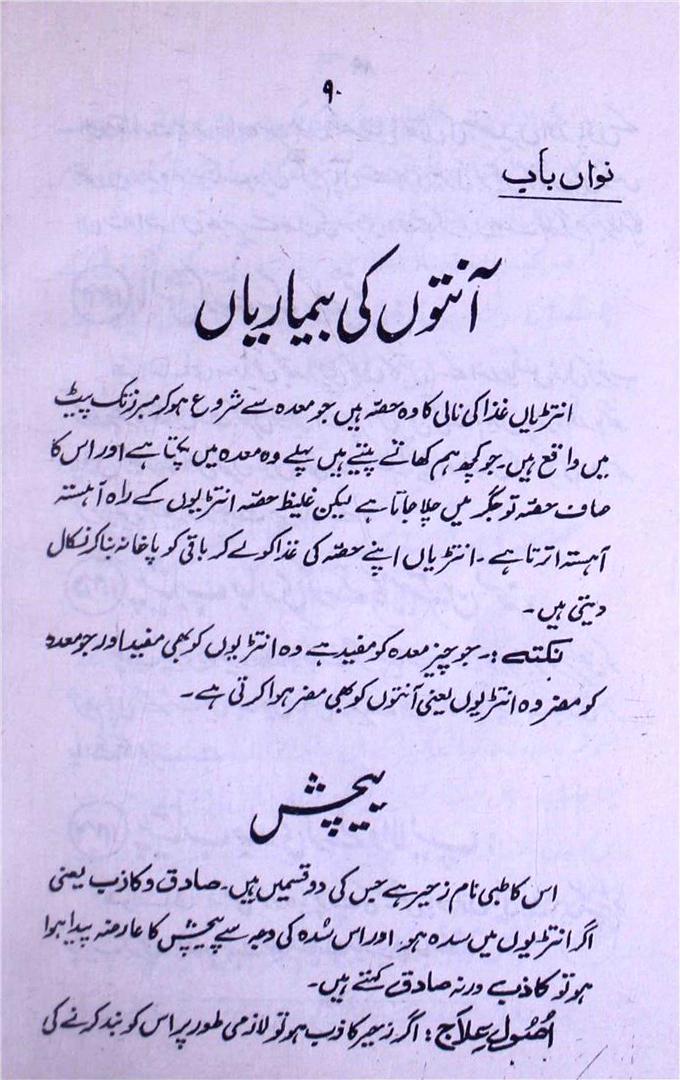 ۹۰
نواں باب
آنتوں کی بیماریاں
انتڑیاں غذا کی نالی کا وہ حصہ ہیں جو معدہ سے شروع ہو کر مبرز تک پیٹ
میں واقع ہیں۔ جو کچھ ہم کھاتے پیتے ہیں پہلے وہ معدہ میں پکتا ہے اور اس کا
صاف حصہ تو جگر میں چلا جاتا ہے لیکن غلیظ حصہ انتڑیوں کے راہ آہستہ
آہستہ اترتا ہے۔ انتڑیاں اپنے حصہ کی غذا کو لے کر باقی کو پاخانہ بنا کر نکال
دیتی ہیں۔
نکتے :۔ جو چیز معدہ کو مفید ہے وہ انتڑیوں کو بھی مفید اور جو معدہ
کو مضر وہ انتڑیوں یعنی آنتوں کو بھی مضر ہوا کرتی ہے۔
پیچش
اس کا طبی نام زحیر ہے جس کی دو قسمیں ہیں۔ صادق و کاذب یعنی
اگر انتڑیوں میں سدہ ہو۔ اور اس شدہ کی وجہ سے پیچش کا عارضہ پیدا ہوا
ہو تو کاذب ورنہ صادق کہتے ہیں۔
اصول علاج : اگر زحیر کاذب ہو تو لازمی طور پر اس کو بند کرنے کی